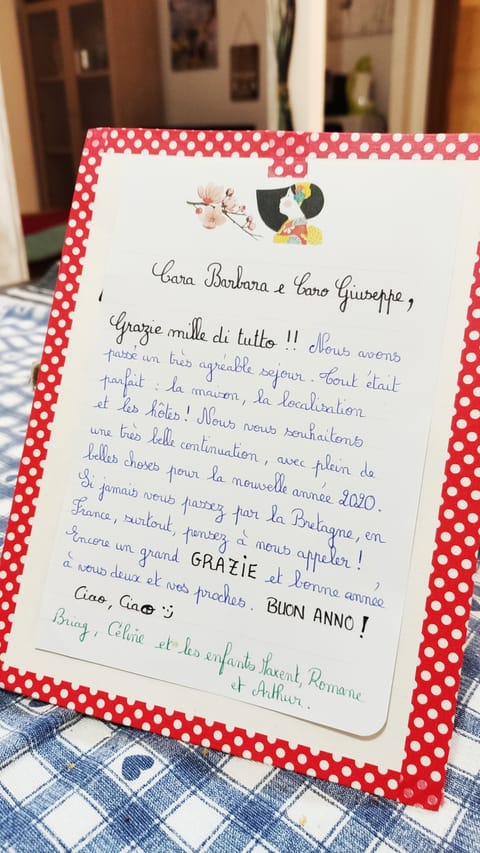 Cara Barbara e Caro Giuseppe,
Grazie mille di tutto !! Nous avons
passé un très agréable sejour. Tout était
parfait : la maison, la localisation
et les hôtes ! Nous vous souhaitons
une très belle continuation, avec plein de
belles choses pour la nouvelle année 2020.
Si jamais vous passez par la Bretagne, en
France, surtout, pensez à nous appeler !
Encore un grand GRAZIE et bonne année
à vous deux et vos proches. BUON ANNO !
Ciao, Ciao :)
Briag, Céline et les enfants Maxent, Romane
et Arthur.